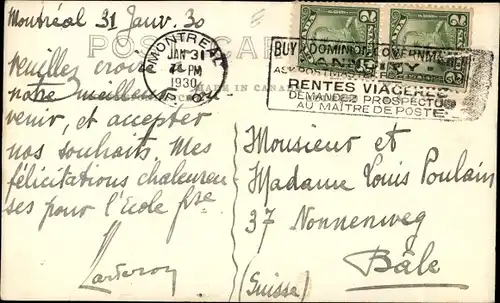 Montréal 31 Janv. 30
POST CARD
MONTREAL
JAN 31
PM
1930
P.Q.
BUY DOMINION GOVERNMENT
ANNUITY
ASK POSTMASTER
RENTES VIAGERES
DEMANDEZ PROSPECTUS
AU MAÎTRE DE POSTE
2 2
2 2
MADE IN CANADA
Veuillez croire
notre meilleur
venir, et accepter
nos souhaits Mes
félicitations chaleureu
ses pour l'Ecole fse
Monsieur et
Madame Louis Poulain
37 Nonnenweg
Bâle
(Suisse)